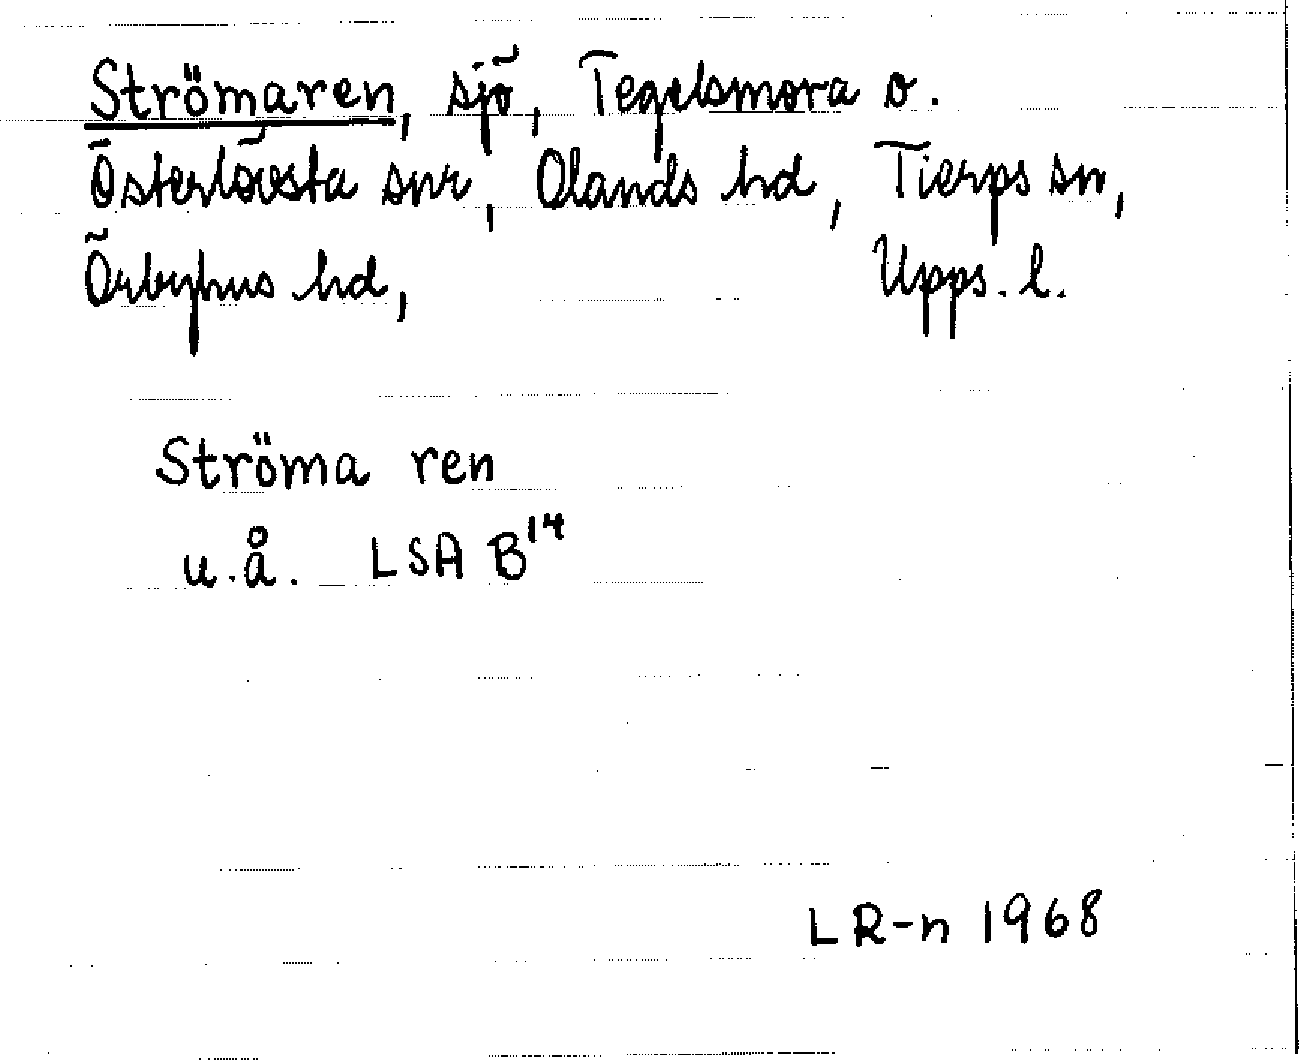 Strömaren, sjö, Tegelsmora o.
Österlövsta snr, Olands hd, Tierps sn,
Örbyhus hd, Upps. l.
Ströma ren
u.å. LSA B14
LR-n 1968